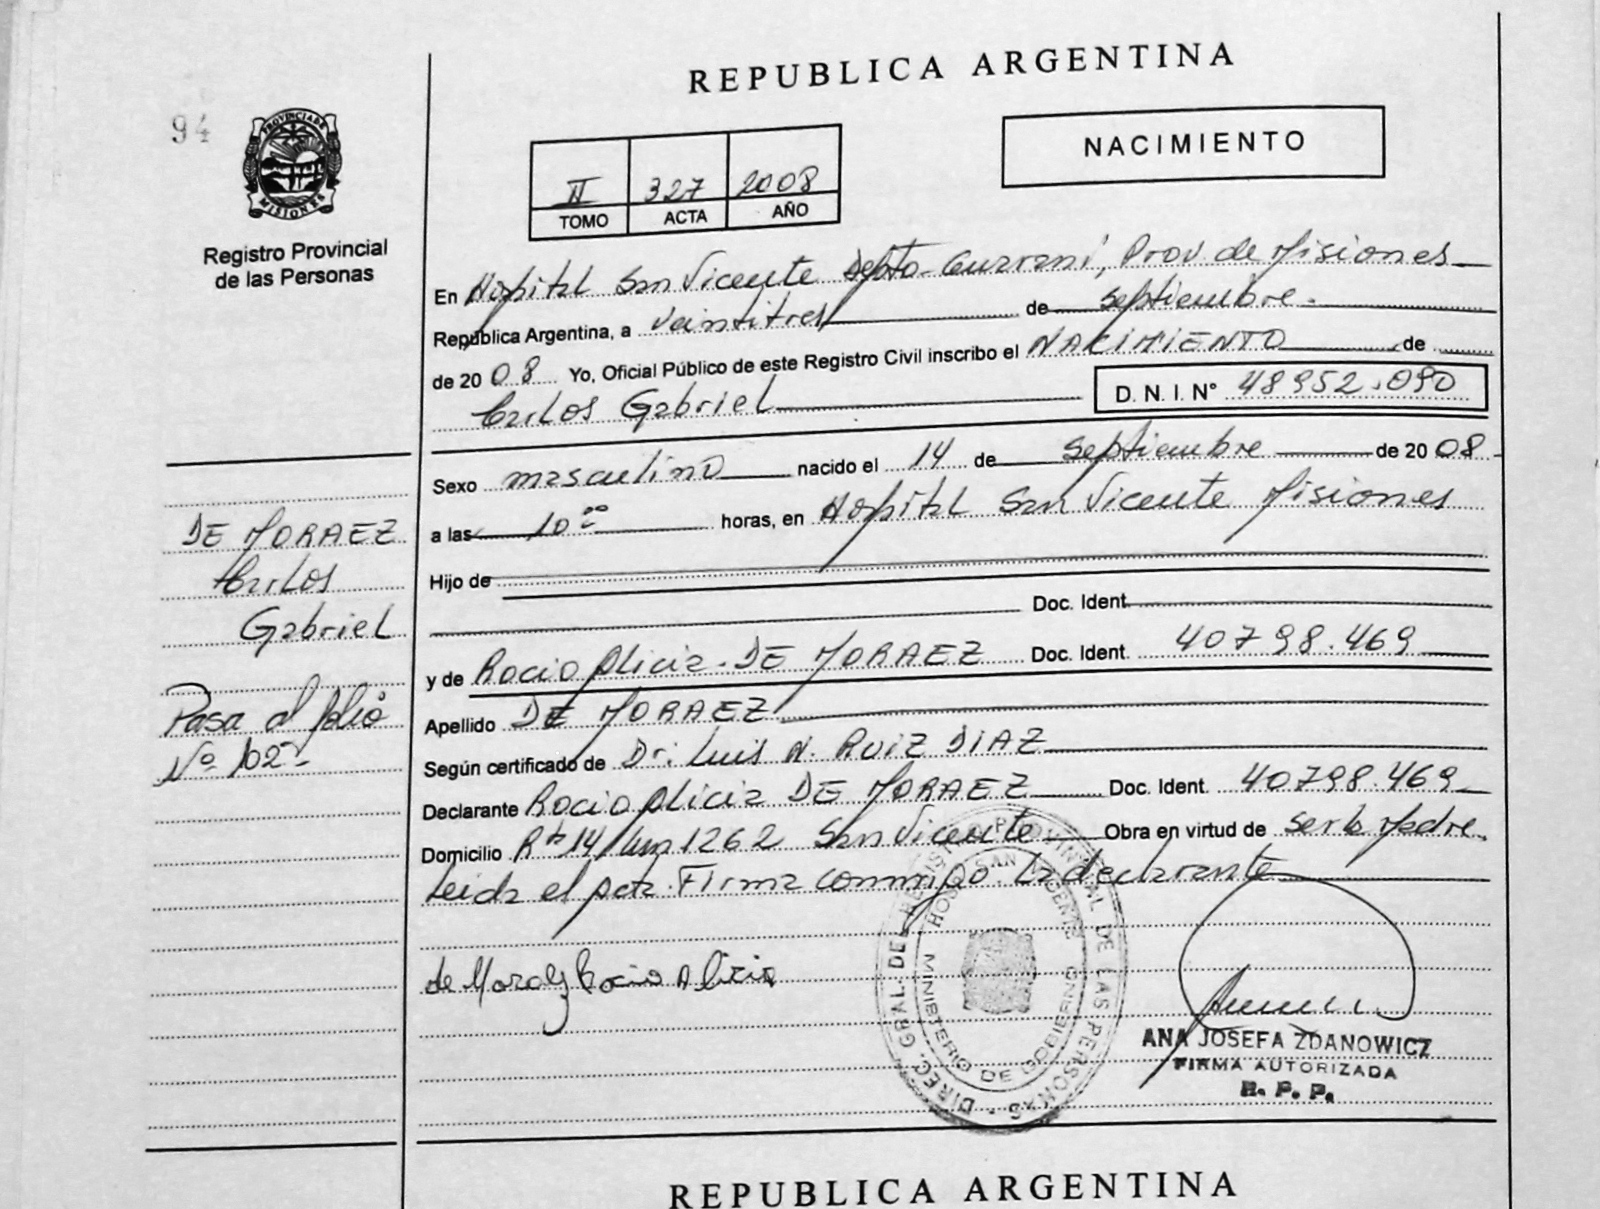 REPUBLICA ARGENTINA
94
PROVINCIA DE MISIONES
Registro Provincial
de las Personas
II 327 2008
TOMO ACTA AÑO
NACIMIENTO
En Hospital San Vicente Depto- Guarani, Prov. de Misiones
República Argentina, a veintitres de septiembre.
de 2008 Yo, Oficial Público de este Registro Civil inscribo el NACIMIENTO de
Carlos Gabriel D. N. I. N° 48952.090
Sexo masculino nacido el 14 de septiembre de 2008
a las 10 00 horas, en Hospital San Vicente Misiones
Hijo de
Doc. Ident.
y de Rocio Alicia DE MORAEZ Doc. Ident. 40798.469
Apellido DE MORAEZ
Según certificado de Dr. Luis N. RUIZ DIAZ
Declarante Rocio Alicia DE MORAEZ Doc. Ident. 40798.469
Domicilio 14 km 1262 San Vicente Obra en virtud de ser la Madre.
Leida el acta. Firma conmigo. La declarante
DE MORAEZ
Carlos
Gabriel
Pasa al folio
Nº 102
de Moraez Rocio Alicia
DIREC. GRAL. DEL REGISTRO PROVINCIAL DE LAS PERSONAS
HOSP. SAN VICENTE
MINISTERIO DE GOBIERNO
ANA JOSEFA ZDANOWICZ
FIRMA AUTORIZADA
R. P. P.
REPUBLICA ARGENTINA